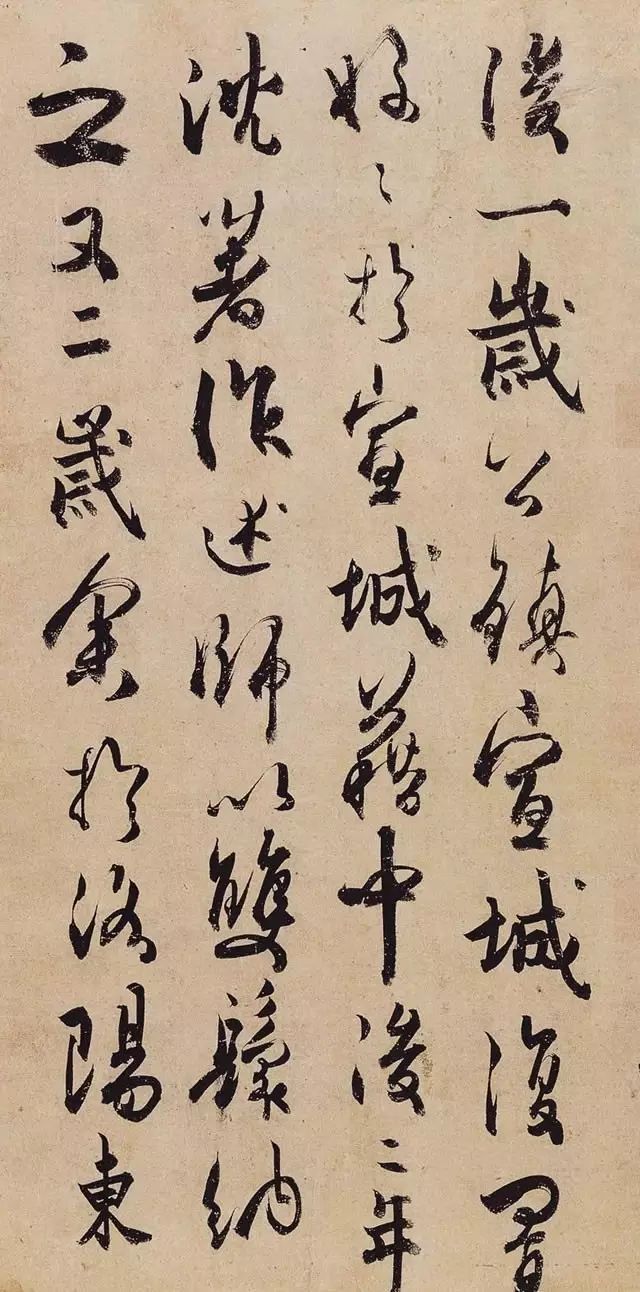 後一歲公鎮宣城復置
好〻於宣城籍中後二年
沈著作述師以雙鬟納
之又二歲余於洛陽東